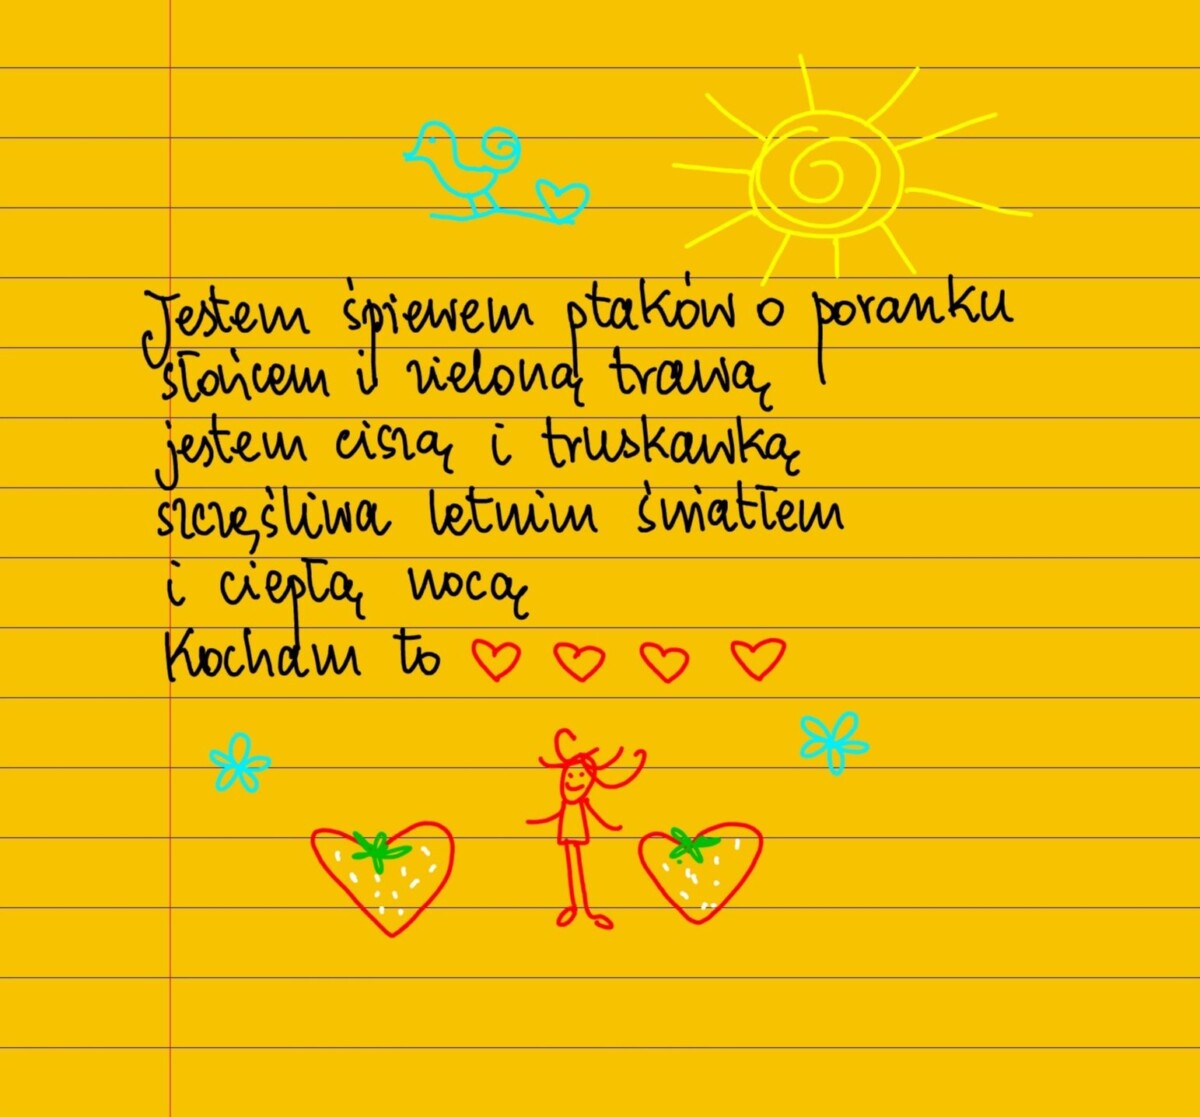 Jestem śpiewem ptaków o poranku
słońcem i zieloną trawą
jestem ciszą i truskawką
szczęśliwa letnim światłem
i ciepłą nocą
Kocham to